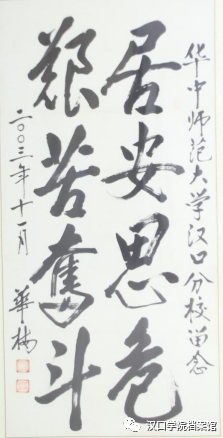 华中师范大学汉口分校留念
居安思危
艰苦奋斗
二〇〇三年十一月
華楠
汉口学院档案馆